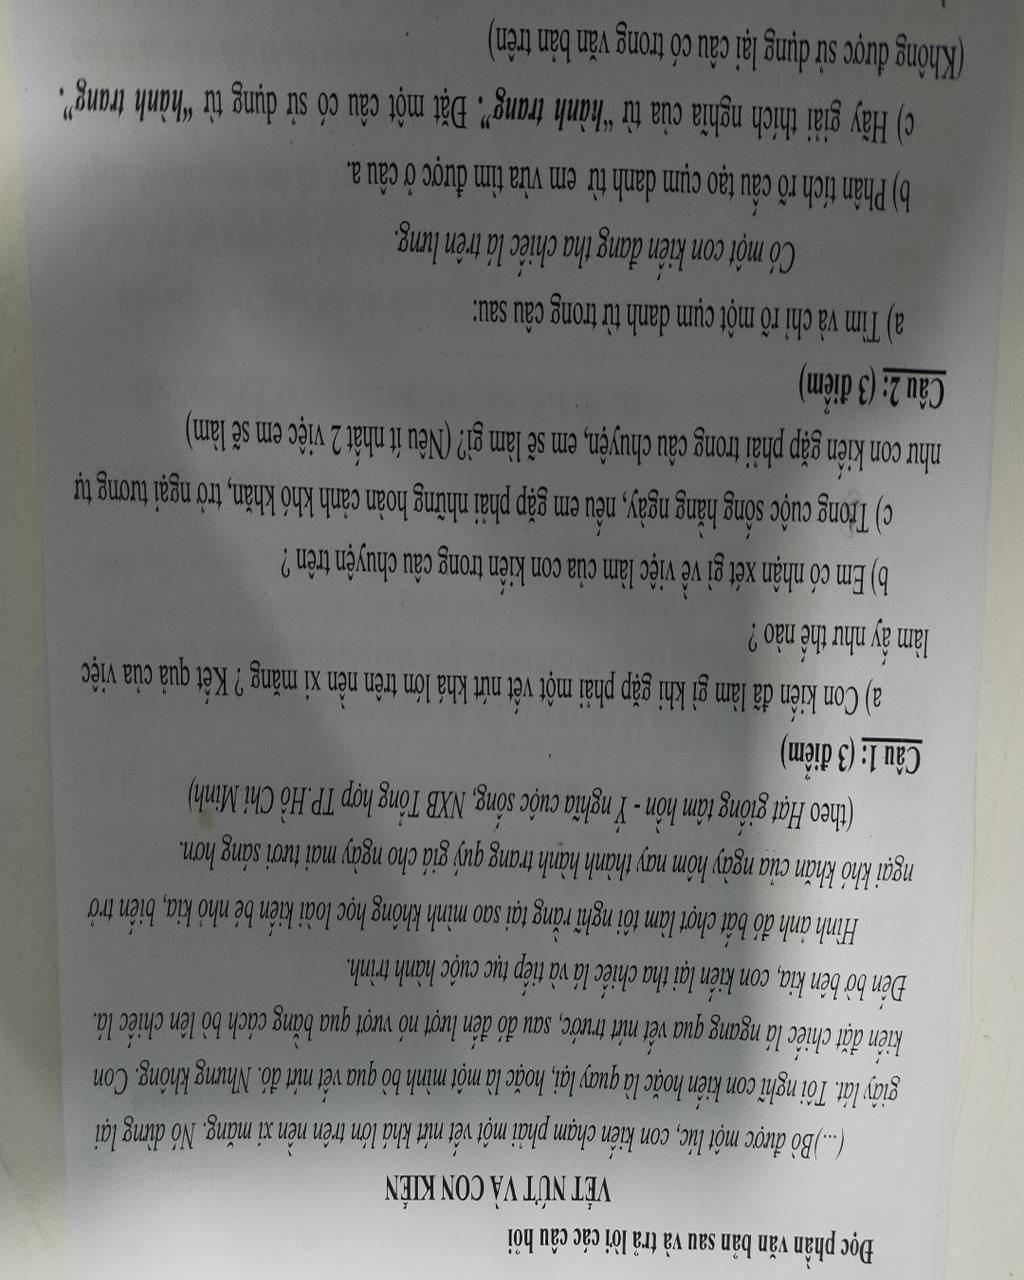 Đọc phần văn bản sau và trả lời các câu hỏi
VẾT NỨT VÀ CON KIẾN
(...)Bò được một lúc, con kiến chạm phải một vết nứt khá lớn trên nền xi măng. Nó dừng lại
giây lát. Tôi nghĩ con kiến hoặc là quay lại, hoặc là một mình bò qua vết nứt đó. Nhưng không. Con
kiến đặt chiếc lá ngang qua vết nứt trước, sau đó đến lượt nó vượt qua bằng cách bò lên chiếc lá.
Đến bờ bên kia, con kiến lại tha chiếc lá và tiếp tục cuộc hành trình.
Hình ảnh đó bất chợt làm tôi nghĩ rằng tại sao mình không học loài kiến bé nhỏ kia, biến trở
ngại khó khăn của ngày hôm nay thành hành trang quý giá cho ngày mai tươi sáng hơn.
(theo Hạt giống tâm hồn - Ý nghĩa cuộc sống, NXB Tổng hợp TP.Hồ Chí Minh)
Câu 1: (3 điểm)
a) Con kiến đã làm gì khi gặp phải một vết nứt khá lớn trên nền xi măng ? Kết quả của việc
làm ấy như thế nào ?
b) Em có nhận xét gì về việc làm của con kiến trong câu chuyện trên ?
c) Trong cuộc sống hằng ngày, nếu em gặp phải những hoàn cảnh khó khăn, trở ngại tương tự
như con kiến gặp phải trong câu chuyện, em sẽ làm gì? (Nêu ít nhất 2 việc em sẽ làm)
Câu 2: (3 điểm)
a) Tìm và chỉ rõ một cụm danh từ trong câu sau:
Có một con kiến đang tha chiếc lá trên lưng.
b) Phân tích rõ cấu tạo cụm danh từ em vừa tìm được ở câu a.
c) Hãy giải thích nghĩa của từ "hành trang". Đặt một câu có sử dụng từ "hành trang".
(Không được sử dụng lại câu có trong văn bản trên)